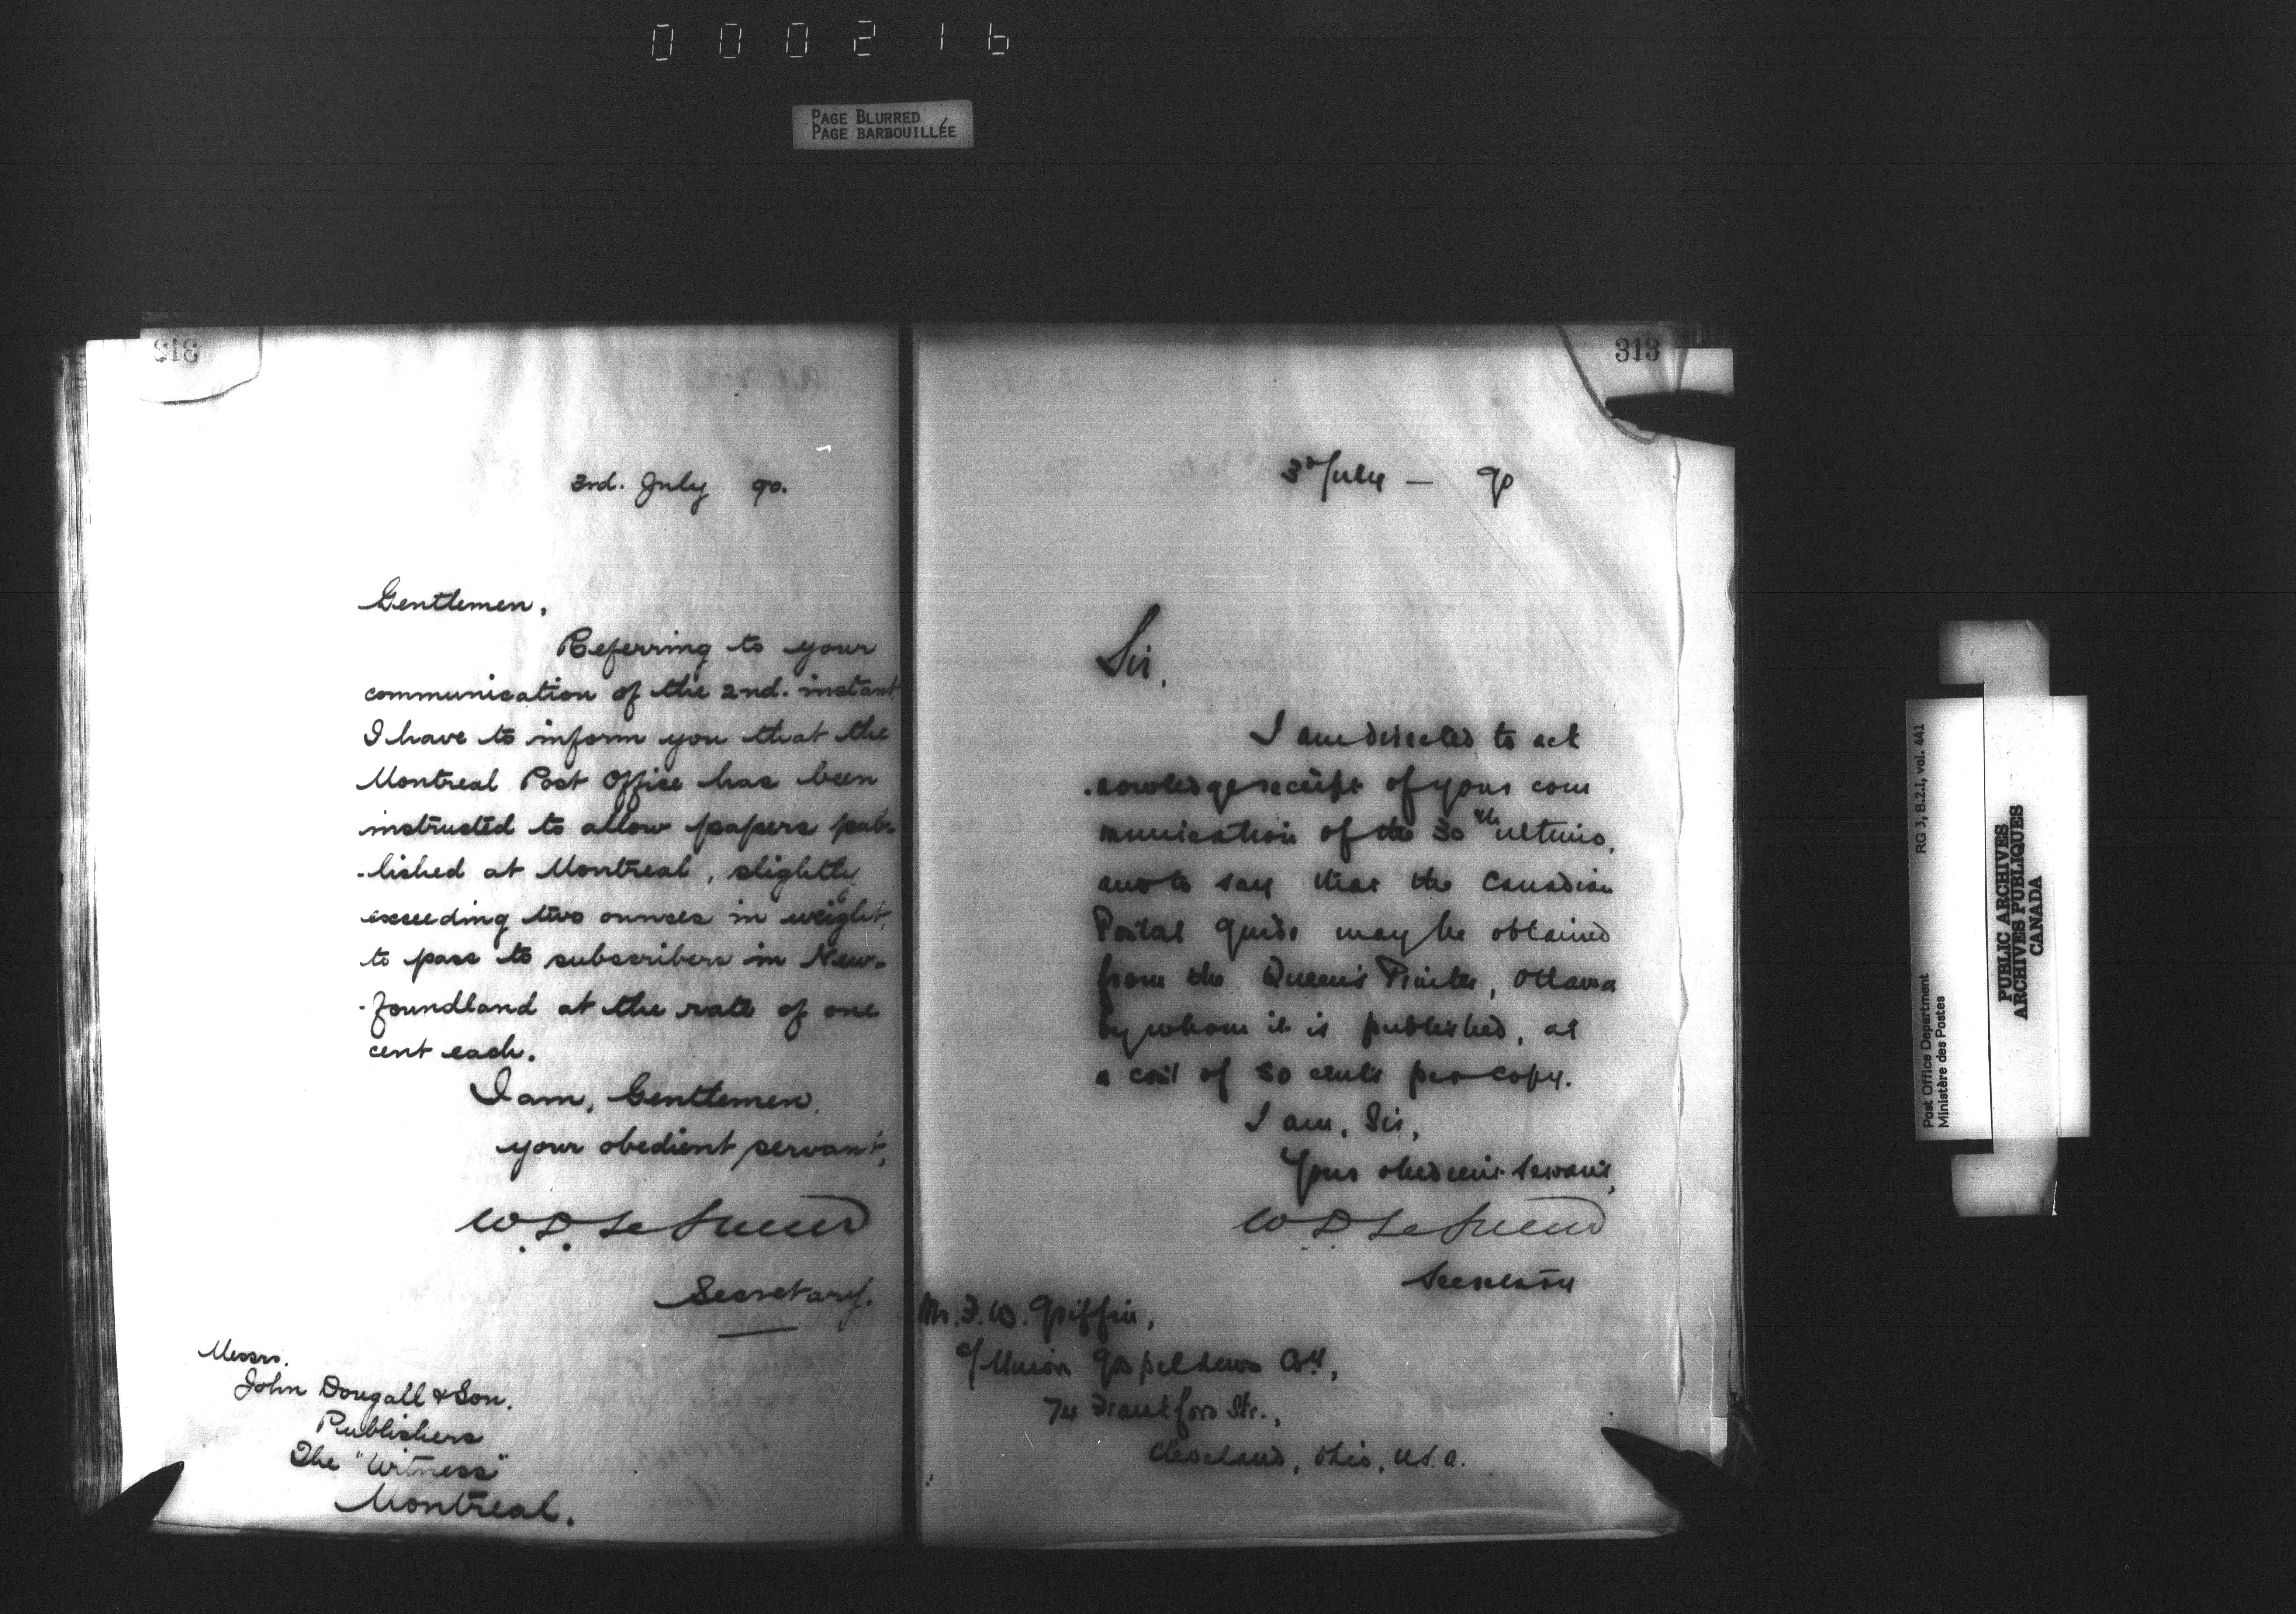 000216
PAGE BLURRED
PAGE BARBOUILLÉE
312
3rd. July 90.
Gentlemen,
Referring to your
communication of the 2nd. instant
I have to inform you that the
Montreal Post Office has been
instructed to allow papers pub-
-lished at Montreal, slightly
exceeding two ounces in weight,
to pass to subscribers in New-
-foundland at the rate of one
cent each.
I am, Gentlemen,
your obedient servant,
W. D. LeSueur
Secretary.
Messrs.
John Dougall & Son.
Publishers
The "Witness"
Montreal.
313
3d July — 90
Sir,
I am directed to ack
-nowledge receipt of your com
munication of the 30th ultimo,
and to say that the Canadian
Postal Guide may be obtained
from the Queen's Printer, Ottawa
by whom it is published, at
a cost of 30 cents per copy.
I am, Sir,
Your obedient servant,
W D LeSueur
Secretary
Mr. F. W. Griffin,
c/ Union Gospel News Coy,
74 Frankford Str.,
Cleveland, Ohio, U.S.A.
Post Office Department
Ministère des Postes
RG 3, B.2.I, vol. 441
PUBLIC ARCHIVES
ARCHIVES PUBLIQUES
CANADA